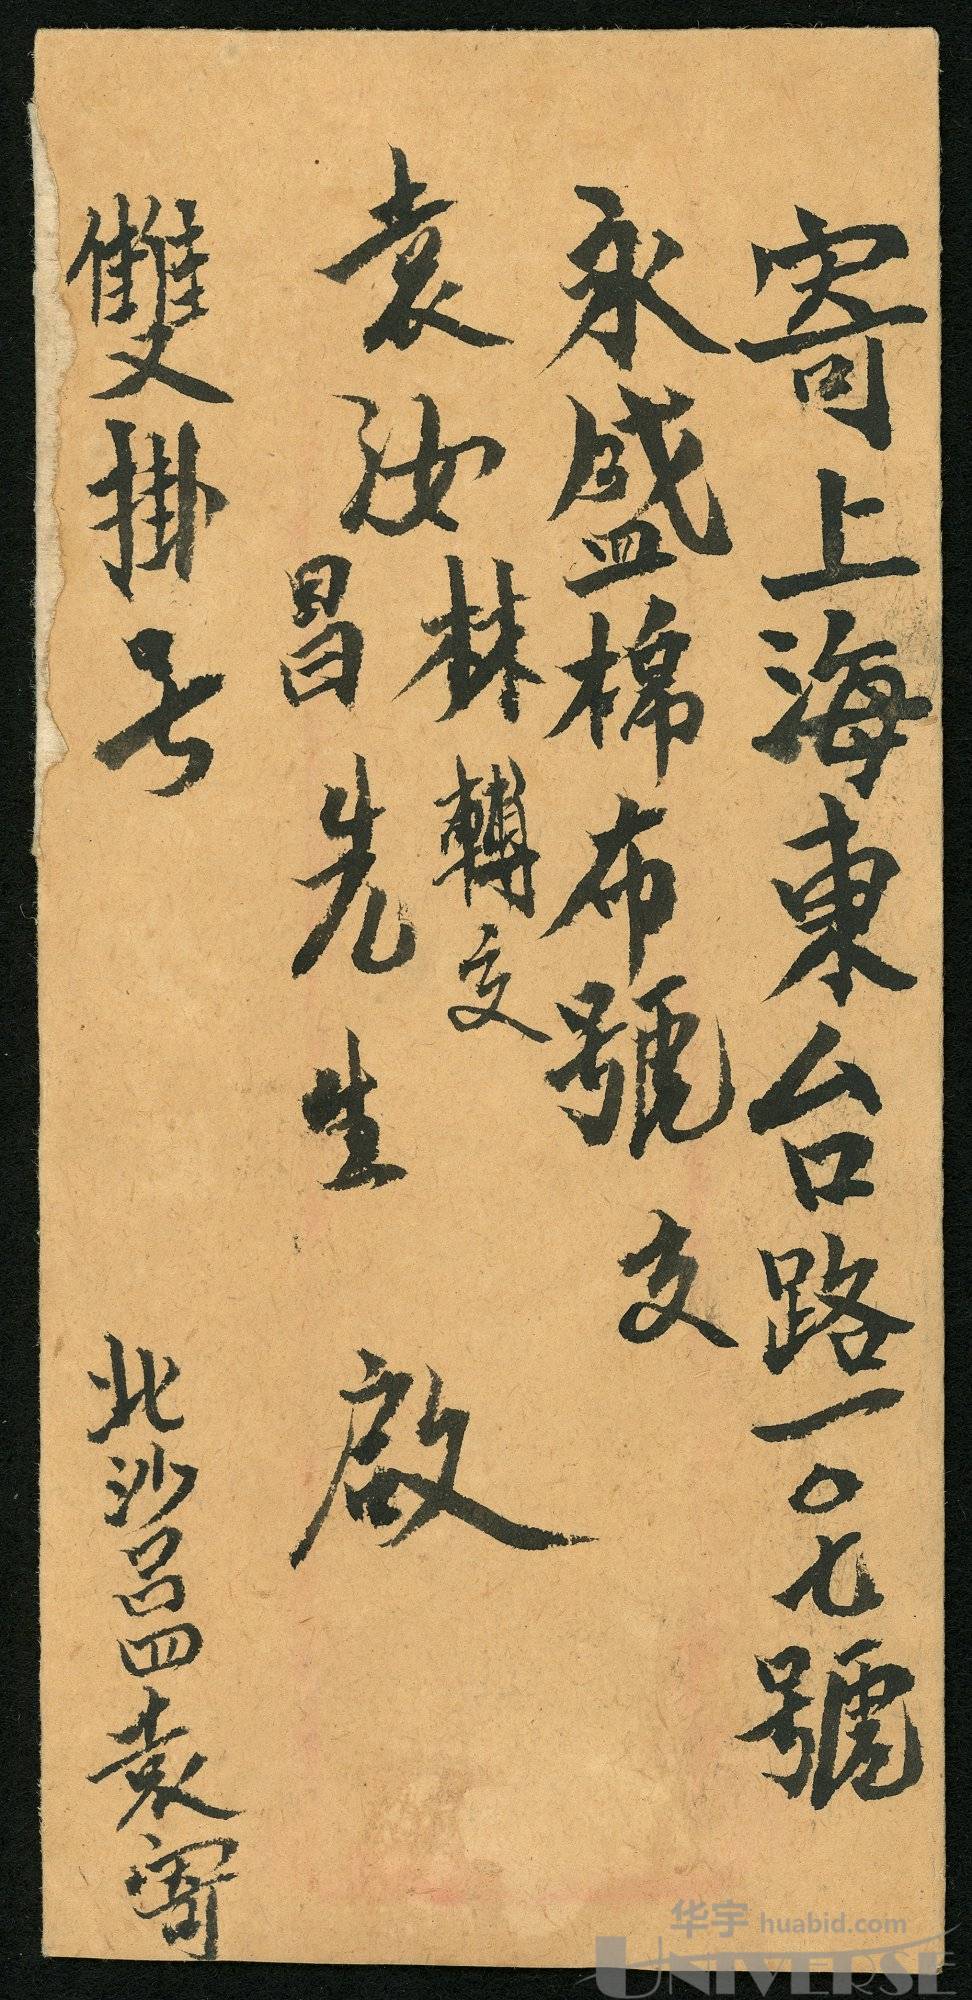 寄上海東台路一〇七號
永盛棉布號 交
袁汝林轉交
昌先生 啟
雙掛号
北沙呂四袁寄
华宇 huabid.com
UNIVERSE